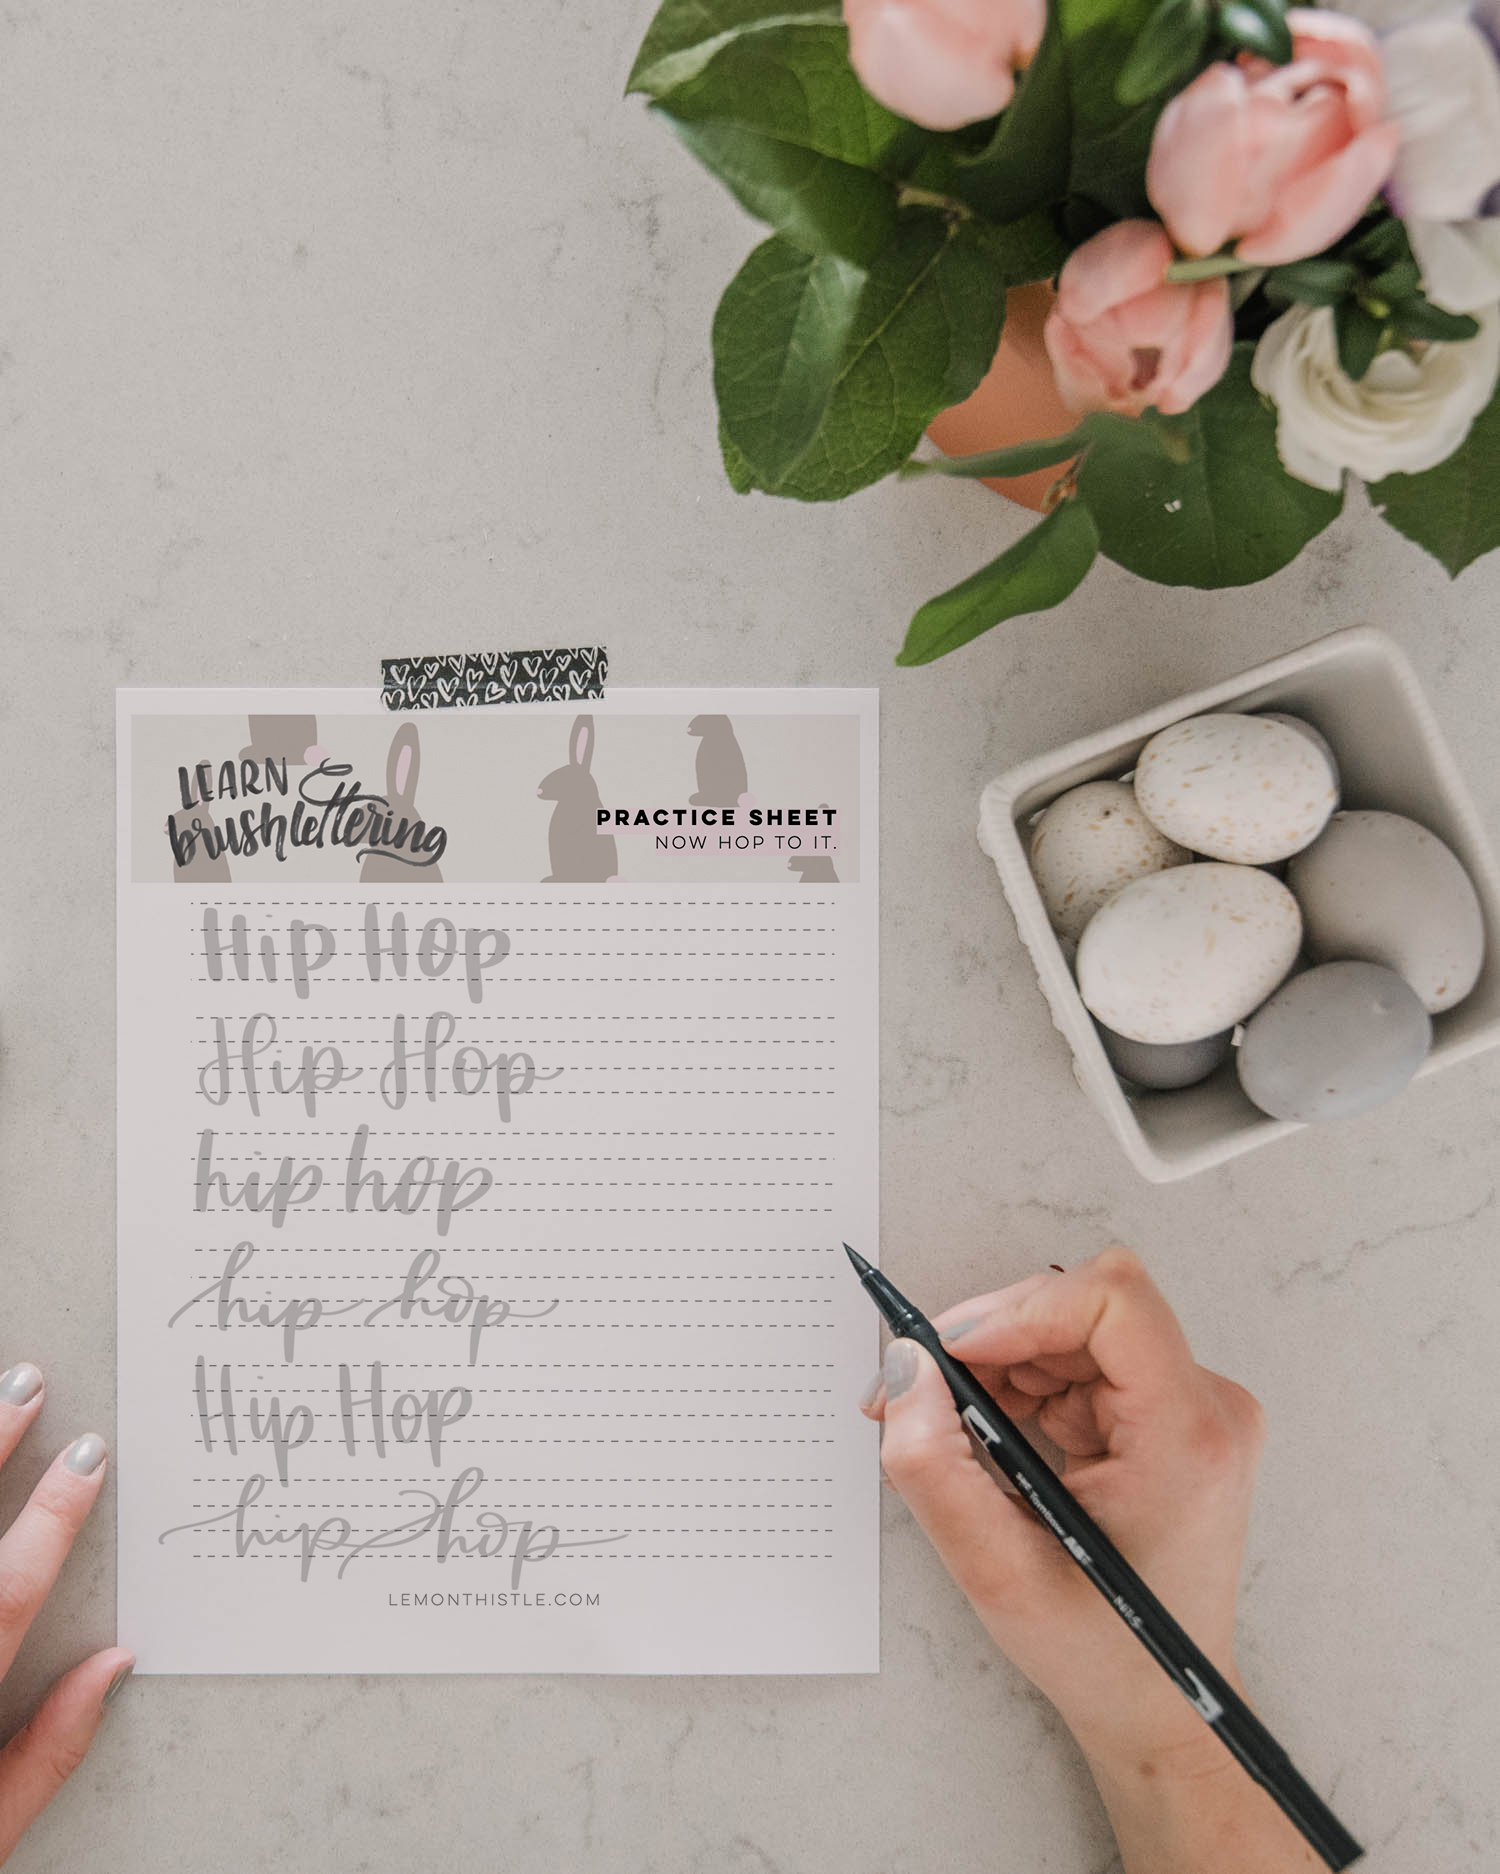 LEARN
brushlettering
PRACTICE SHEET
NOW HOP TO IT.
Hip Hop
Hip Hop
hip hop
hip hop
Hip Hop
hip hop
LEMONTHISTLE.COM
Tombow ABT
N15